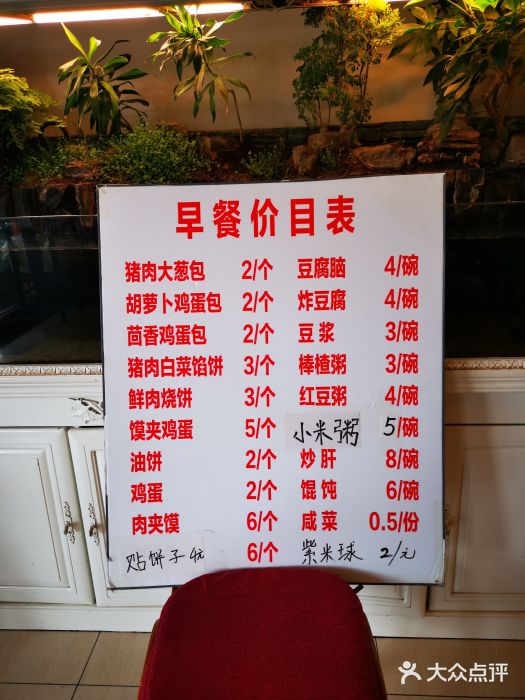 早餐价目表
猪肉大葱包 2/个 豆腐脑 4/碗
胡萝卜鸡蛋包 2/个 炸豆腐 4/碗
茴香鸡蛋包 2/个 豆浆 3/碗
猪肉白菜馅饼 3/个 棒楂粥 3/碗
鲜肉烧饼 3/个 红豆粥 4/碗
馍夹鸡蛋 5/个 小米粥 5/碗
油饼 2/个 炒肝 8/碗
鸡蛋 2/个 馄饨 6/碗
肉夹馍 6/个 咸菜 0.5/份
贴饼子4元 6/个 紫米球 2/元
大众点评